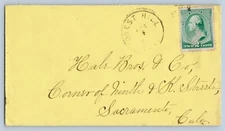 FOREST HILL
Hale Bros. & Co,
Corner of Ninth & K. Streets,
Sacramento,
Cala.